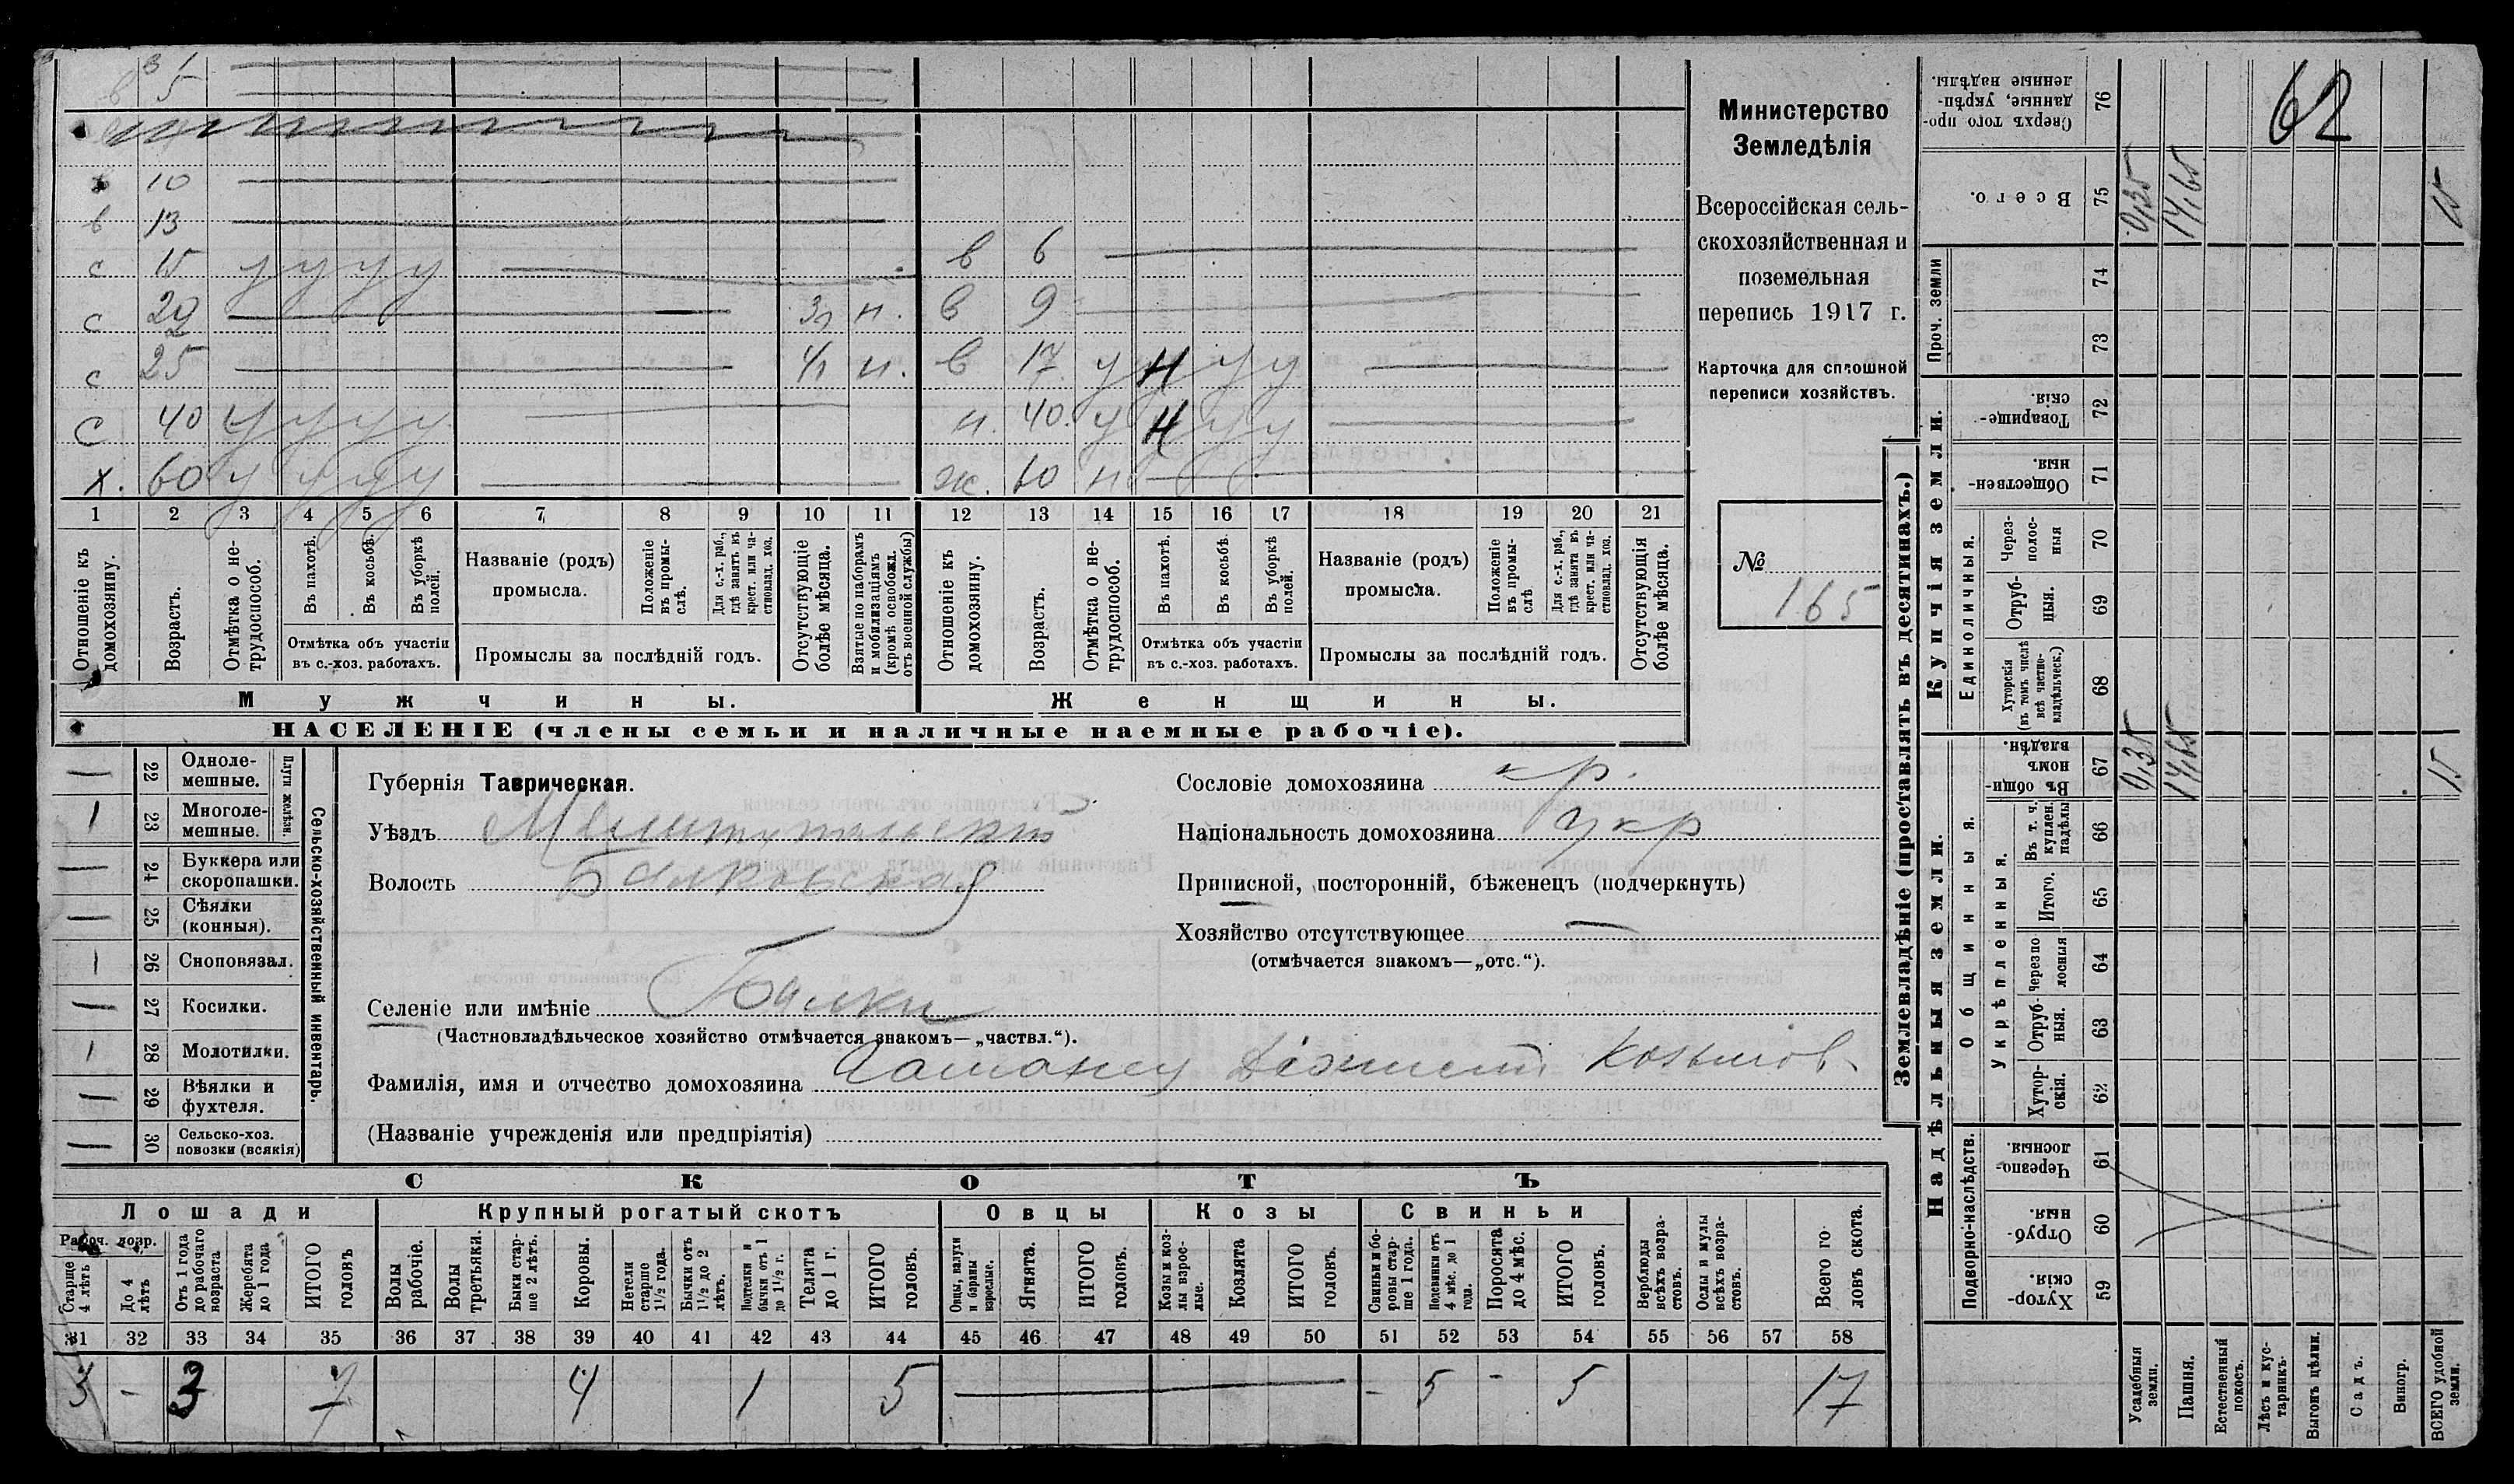 3 1
в 5
10
в 13
с 15 у у у у
с 22 3л н.
с 25 4л н.
с 40 у у у у
х. 60 у у у у
в 6
в 9
в 17 у н у у
н. 40 у н у у
ж. 60 н
1 2 3 4 5 6 7 8 9 10 11 12 13 14 15 16 17 18 19 20 21
Отношеніе къ домохозяину.
Возрастъ.
Отмѣтка о не-трудоспособ.
Въ пахотѣ.
Въ косьбѣ.
Въ уборкѣ полей.
Отмѣтка объ участіи
въ с.-хоз. работахъ.
Названіе (родъ)
промысла.
Положеніе въ промы-слѣ.
Для с.-х. раб., гдѣ занятъ въ крест. или ча-стновлад. хоз.
Промыслы за послѣдній годъ.
Отсутствующіе болѣе мѣсяца.
Взятые по наборамъ и мобилизаціямъ (кромѣ освобожд. отъ военной службы)
Отношеніе къ домохозяину.
Возрастъ.
Отмѣтка о не-трудоспособ.
Въ пахотѣ.
Въ косьбѣ.
Въ уборкѣ полей.
Отмѣтка объ участіи
въ с.-хоз. работахъ.
Названіе (родъ)
промысла.
Положеніе въ промы-слѣ
Для с.-х. раб., гдѣ занята въ крест. или ча-стновлад. хоз.
Промыслы за послѣдній годъ.
Отсутствующія болѣе мѣсяца.
Мужчины.
Женщины.
НАСЕЛЕНІЕ (члены семьи и наличные наемные рабочіе).
Министерство
Земледѣлія
Всероссійская сель-
скохозяйственная и
поземельная
перепись 1917 г.
Карточка для сплошной
переписи хозяйствъ.
№
165
Сельско-хозяйственный инвентарь.
Плуги желѣзн.
22 Одноле-мешные.
1 23 Многоле-мешные.
24 Буккера или скоропашки.
25 Сѣялки (конныя).
26 Сноповязал.
27 Косилки.
28 Молотилки.
29 Вѣялки и фухтеля.
30 Сельско-хоз. повозки (всякія)
Губернія Таврическая.
Уѣздъ Мелитопольскій
Волость Балковская
Селеніе или имѣніе Балки
(Частновладѣльческое хозяйство отмѣчается знакомъ—„частвл.“).
Фамилія, имя и отчество домохозяина
(Названіе учрежденія или предпріятія)
Сословіе домохозяина кр.
Національность домохозяина укр
Приписной, посторонній, бѣженецъ (подчеркнуть)
Хозяйство отсутствующее —
(отмѣчается знакомъ—„отс.“).
СКОТЪ
Лошади
Крупный рогатый скотъ
Овцы
Козы
Свиньи
Рабоч. возр.
Старше 4 лѣтъ
До 4 лѣтъ
Отъ 1 года до рабочаго возраста
Жеребята до 1 года
ИТОГО головъ
Волы рабочіе.
Волы третьяки.
Быки стар-ше 2 лѣтъ.
Коровы.
Нетели старше 1½ года.
Бычки отъ 1½ до 2 лѣтъ.
Подтелки и бычки отъ 1 до 1½ г.
Телята до 1 г.
ИТОГО головъ.
Овцы, валухи и бараны взрослые.
Ягнята.
ИТОГО головъ.
Козы и коз-лы взрос-лые.
Козлята
ИТОГО головъ.
Свиньи и бо-ровы стар-ше 1 года.
Подсвинки отъ 4 мѣс. до 1 года.
Поросята до 4 мѣс.
ИТОГО головъ.
Верблюды всѣхъ возра-стовъ.
Ослы и мулы всѣхъ возра-стовъ.
Всего го-ловъ скота.
31 32 33 34 35 36 37 38 39 40 41 42 43 44 45 46 47 48 49 50 51 52 53 54 55 56 57 58
3 - 3 7 4 1 5 - 5 - 5 17
Землевладѣніе (проставлять въ десятинахъ.)
Купчія земли.
Надѣльныя земли.
Сверхъ того про-данные, укрѣп-ленные надѣлы. 76
62
Всего. 75 0,35 14,65 15
Проч. земли 74
73
Товарище-скія. 72
Обществен-ныя. 71
Единоличныя.
Через-полос-ныя 70
Отруб-ныя. 69
Хуторскія (въ томъ числѣ всѣ частно-владѣльческ.) 68
Общинныя.
Въ общин-номъ владѣн. 67 0,35 14,65 15
Укрѣпленныя.
Въ т. ч. куплен. надѣлы 66
Итого. 65
Черезпо-лосныя 64
Отруб-ныя. 63
Хутор-скія. 62
Подворно-наслѣдств.
Черезпо-лосныя. 61
Отруб-ныя. 60
Хутор-скія. 59
Усадебныя земли.
Пашня.
Естественный покосъ.
Лѣсъ и кус-тарникъ.
Выгонъ цѣлин.
Садъ.
Виногр.
ВСЕГО удобной земли.